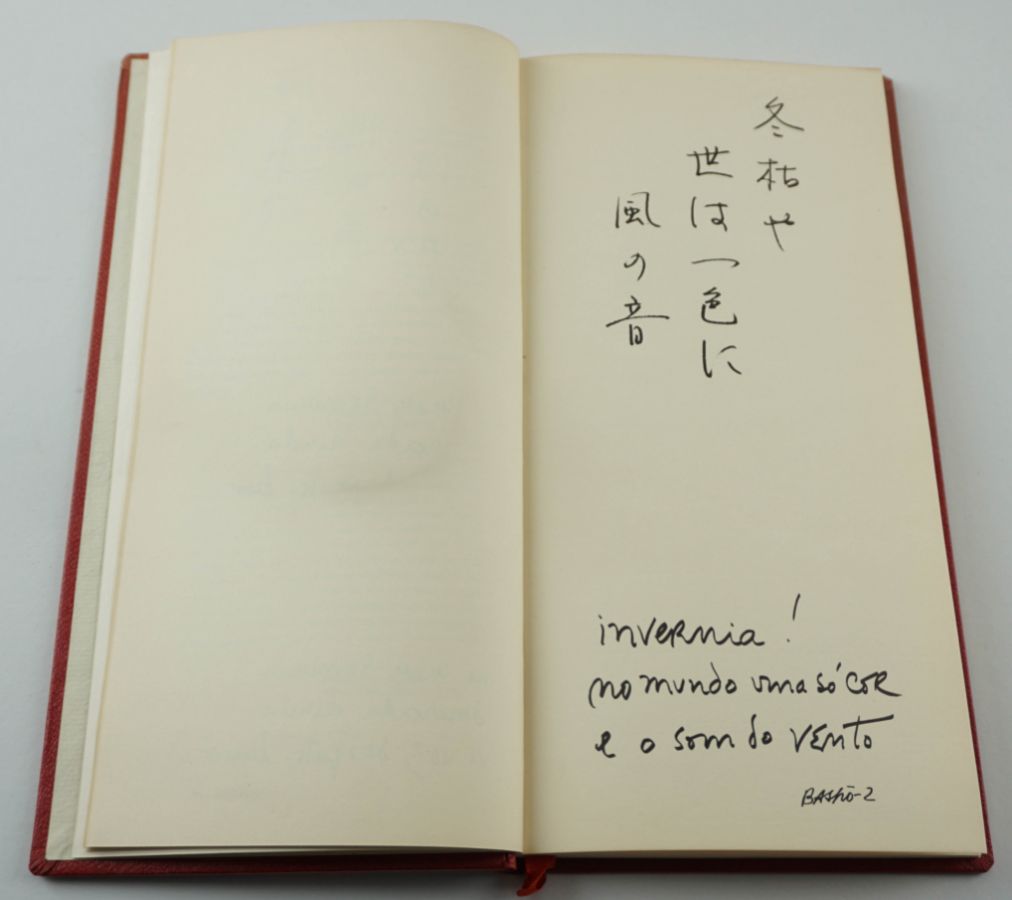 冬枯や
世は一色に
風の音
invernia!
no mundo uma só cor
e o som do vento
BASHÔ-2